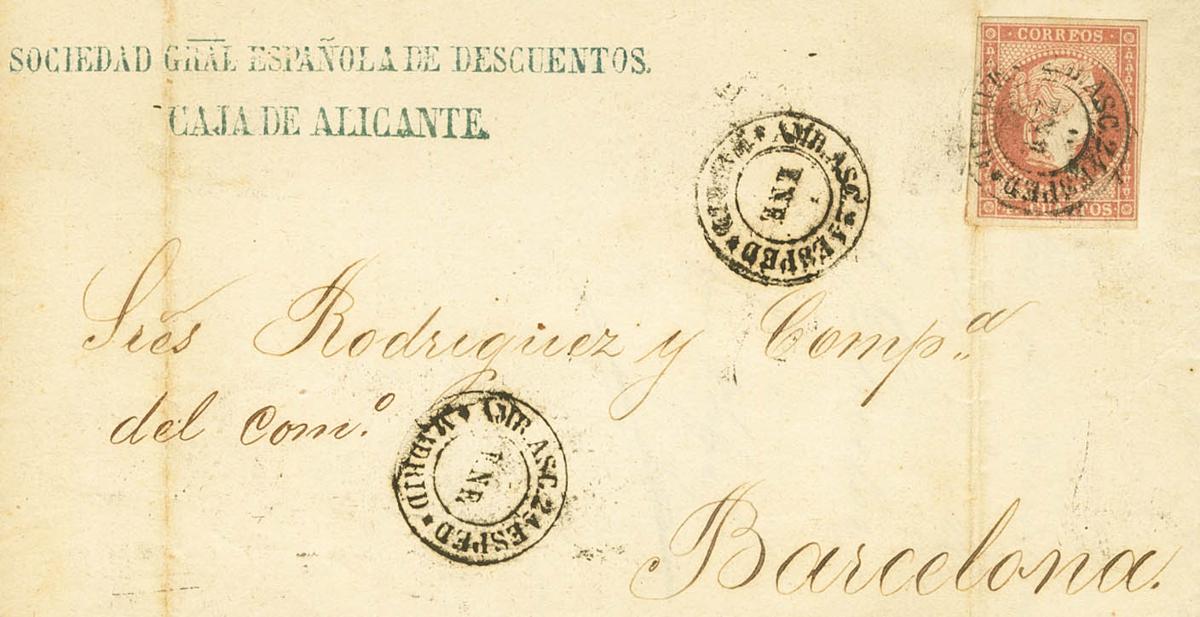 SOCIEDAD GRAL ESPAÑOLA DE DESCUENTOS.
CAJA DE ALICANTE.
CORREOS
CUARTOS
AMB. ASC. 2A ESPED * MADRID *
ENE
AMB. ASC. 2A ESPED * MADRID *
ENE
Sres Rodriguez y Comp.a
del com.o
AMB. ASC. 2A ESPED * MADRID *
ENE
Barcelona.